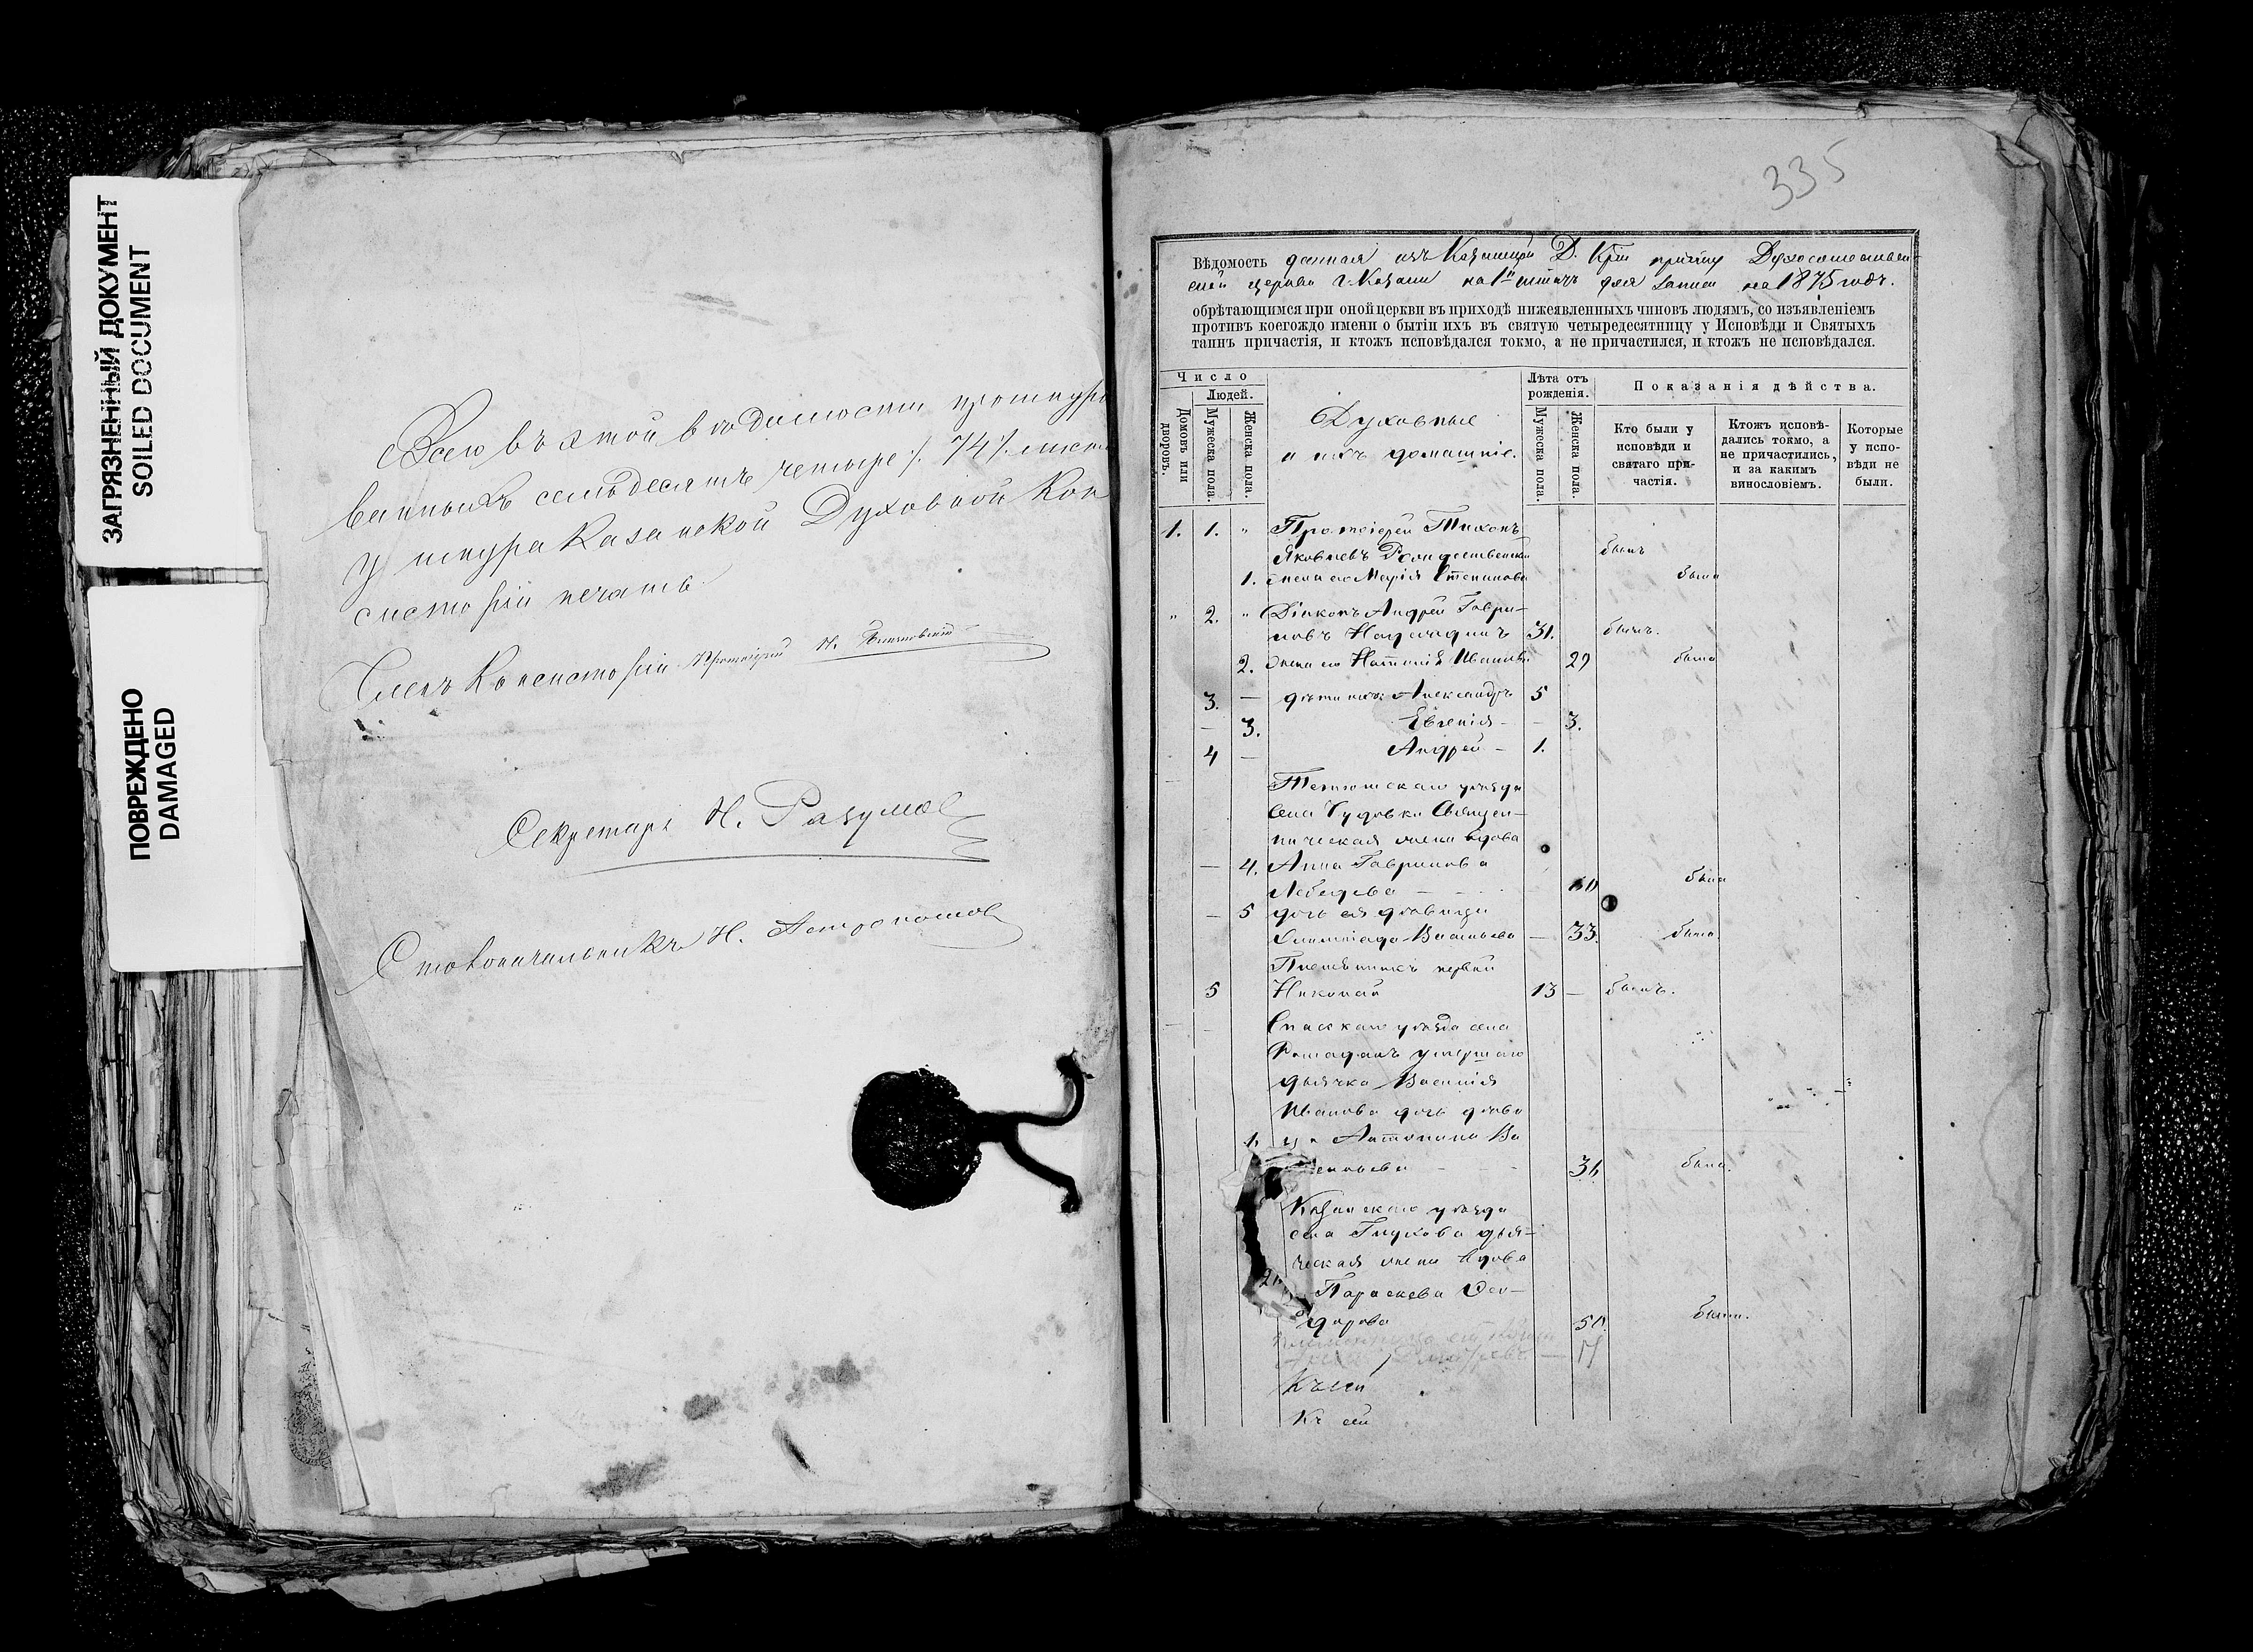 ЗАГРЯЗНЕННЫЙ ДОКУМЕНТ
SOILED DOCUMENT
ПОВРЕЖДЕНО
DAMAGED
Всего въ этой вѣдомости прошнуро
ванныхъ семьдесятъ четыре /. 74 /. листа
у шнура Казанской Духовной Кон
систоріи печать.
Членъ Консисторіи Протоіерей
Секретарь Н. Разумов
Столоначальникъ Н.
335
Вѣдомость данная изъ Казанской Д. Кріи причту Духосошественской
церкви г. Казани на 1875 годъ.
обрѣтающимся при оной церкви въ приходѣ нижеявленныхъ чиновъ людямъ, со изъявленіемъ
противъ коегождо имени о бытіи ихъ въ святую четыредесятницу у Исповѣди и Святыхъ
таинъ причастія, и ктожъ исповѣдался токмо, а не причастился, и ктожъ не исповѣдался.
Число
Людей.
Домовъ или дворовъ.
Мужеска пола.
Женска пола.
Духовные
и ихъ домашніе.
Лѣта отъ рожденія.
Мужеска пола.
Женска пола.
Показанія дѣйства.
Кто были у исповѣди и святаго причастія.
Ктожъ исповѣдались токмо, а не причастились, и за какимъ винословіемъ.
Которые у исповѣди не были.
1. 1. " Протоіерей Тихонъ
Яковлевъ Рождественскій былъ
1. жена его Марія Степанова была
" 2. " Діаконъ Андрей Гаври-
ловъ 31. былъ.
2. жена его Наталія Иванова 29 была
3. — дѣти ихъ: Александръ 5
— 3. Евгенія — — 3.
4 — Андрей — 1.
Тетюшскаго уѣзда
села Чудовки Священ-
ническая жена вдова
— 4. Анна Гаврилова
Лебедева — 60 была
— 5 дочь ея дѣвица
Олимпіада Васильева — 33. была.
Племянникъ первый
5 Николай 13 — былъ.
Спасскаго уѣзда села
умершаго
дьячка Василія
Иванова дочь дѣви
1. ца Антонина Ва
сильева — 36 была.
Казанскаго уѣзда
села Глухова дья-
ческая жена вдова
2. Параскева Ѳео-
дорова 50. была.
Къ сей
Къ сей